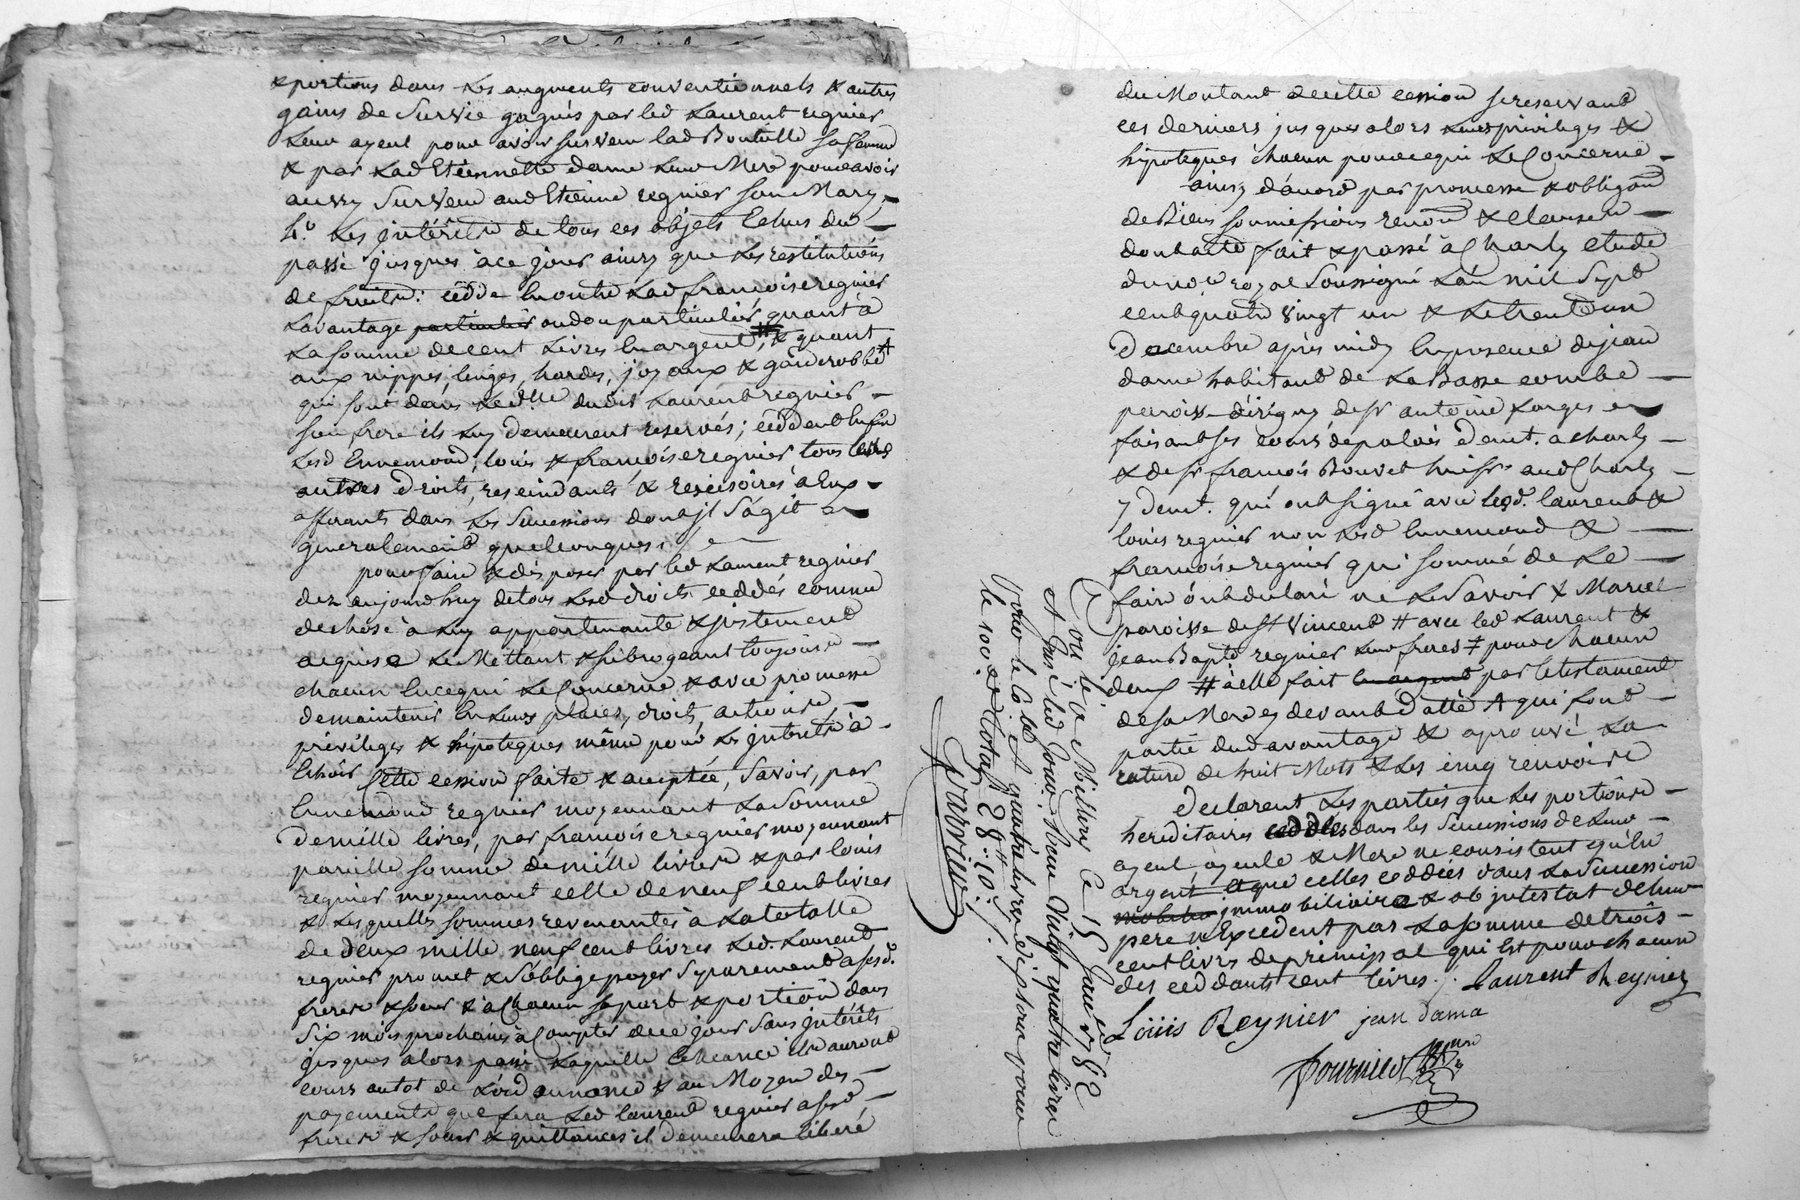 & portions dans les augments conventionnels & autres
gains de Survie gagnés par led Laurent regnier
leur ayeul pour avoir survecu lad Boutelle sa femme
& par lad Etiennette dama leur Mere pour avoir
aussy Survecu aud Etienne regnier son Mary,
4.° Les intérêts de tous ces objets Echus du
passé jusques à ce jour ainsy que les restitutions
de fruits: cedde En outre lad françoise regnier
Lavantage particulier ou don particulier quant à
la somme de cent Livres En argent, # & quant
aux nippes, linges, hardes, joyaux & garderobbe
qui sont dans le d.lle dudit Laurent regnier
son frere ils luy demeurent reservés; ceddent Enfin
lesd Ennemond, louis & françoise regnier tous leurs
autres droits, rescindants & rescisoires à Eux
afferants dans les Successions dont il s'agit
generalement quelconques.
pour faire & disposer par led Laurent regnier
dez aujourdhuy de tous lesd droits ceddés comme
de chose à luy appartenante & justement
acquise Le Mettant & subrogeant toujours
chacun En ce qui Le Concerne & avec promesse
de maintenir En Leurs places, droits, actions
privileges & hipoteques même pour les Interets à
Echoir Cette cession faite & acceptée, Savoir, par
Ennemond regnier moyennant La somme
de mille livres, par françoise regnier moyennant
pareille somme de mille livres & par louis
regnier moyennant celle de neuf cent livres
& lesquelles sommes revenantes à La totalle
de deux mille neuf cent livres Led. Laurent
regnier promet & s'obblige payer Separement à sesd.
freres & soeur & à Chacun sa part & portion dans
Six mois prochains à Compter de ce jour sans intérêts
jusques alors passé Laquelle Echeance ils auront
cours au tot de Lordonnance & au Moyen des
payements que fera Led laurent regnier a sesd
freres & soeur & quittances il demeurera libéré
du Montant de cette cession se reservant
ces derniers jusques alors Leurs privileges &
hipoteques chacun pour ce qui Le Concerne
ainsy d'accord par promesse & obligaõn
de Biens soumissions renonõn & clauses
dont acte fait & passé à Charly etude
du no.re royal Soussigné L'an mil Sept
cent quatre vingt un & Le trente un
Decembre après midy En presence de jean
dama habitant de La Basse combe
paroisse d'irigny, de sr antoine Larges
faisant ses cours de palais demt. a charly
& de sr françois Bouvet huissr aud Charly
y demt. qui ont signé avec lesd. laurent &
louis regnier non lesd Ennemond &
françoise regnier qui sommé de Le
faire ont declaré ne Le Savoir & Marcel
paroisse de St Vincent # avec led Laurent &
jean Bapte regnier leur freres ‡ pour chacun
deux # à elle fait en argent par le testament
de sa Mere cy devant datté & qui font
partie dud avantage & aprouvé La
rature de huit Mots & Les cinq renvoirs
declarent Les parties que Les portions
hereditaires ceddées dans les Successions de Leur
ayeul, ayeule & Mere ne consistent qu'en
argent et que celles ceddées dans La Succession
mobilie immobiliaire & ab intestat de leur
pere n'Excedent pas La somme de trois
cent livres de principal qui Est pour chacun
des ceddants cent livres ./. Laurent Reynier
Loüis Reynier jean dama
fournier
Controllé à Millery le 15 Janvr 1782
& Insi. led jour. Recu Vingt quatre livres
pour le 1er Co.lle & quatre livres dix sous pour
le 100.e Total 28tt..10.s/.